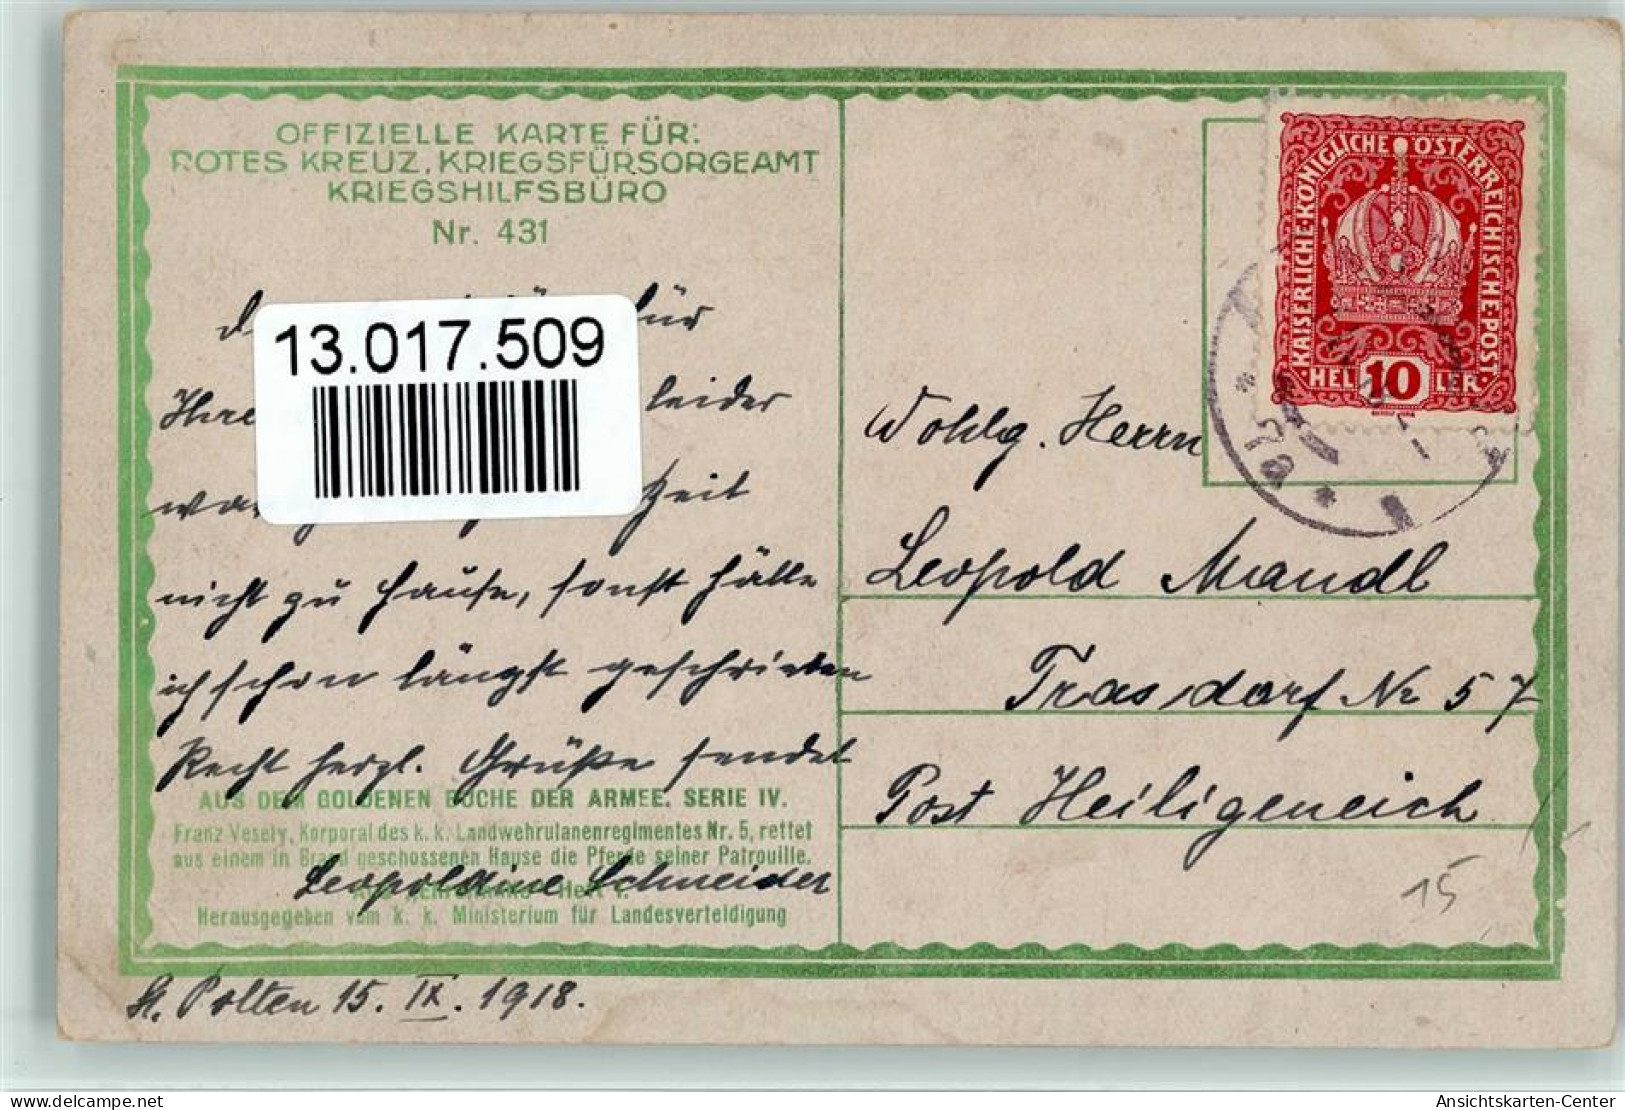 OFFIZIELLE KARTE FÜR:
ROTES KREUZ, KRIEGSFÜRSORGEAMT
KRIEGSHILFSBÜRO
Nr. 431
für
13.017.509
Ihre leider
Zeit
nicht zu Hause, sonst hätte
ich schon längst geschrieben
Recht herzl. Grüße sendet
AUS DEM GOLDENEN BUCHE DER ARMEE. SERIE IV.
Franz Vesely, Korporal des k. k. Landwehrulanenregimentes Nr. 5, rettet
aus einem in Brand geschossenen Hause die Pferde seiner Patrouille.
Leopoldine Schneider
Heft 1.
Herausgegeben vom k. k. Ministerium für Landesverteidigung
St. Pölten 15. IX. 1918.
KAISERLICHE KÖNIGLICHE ÖSTERREICHISCHE POST
HELLER 10
Wohlg. Herrn
Leopold Mandl
Trasdorf Nr 57
Post Heiligeneich
15
delcampe.net
Ansichtskarten-Center